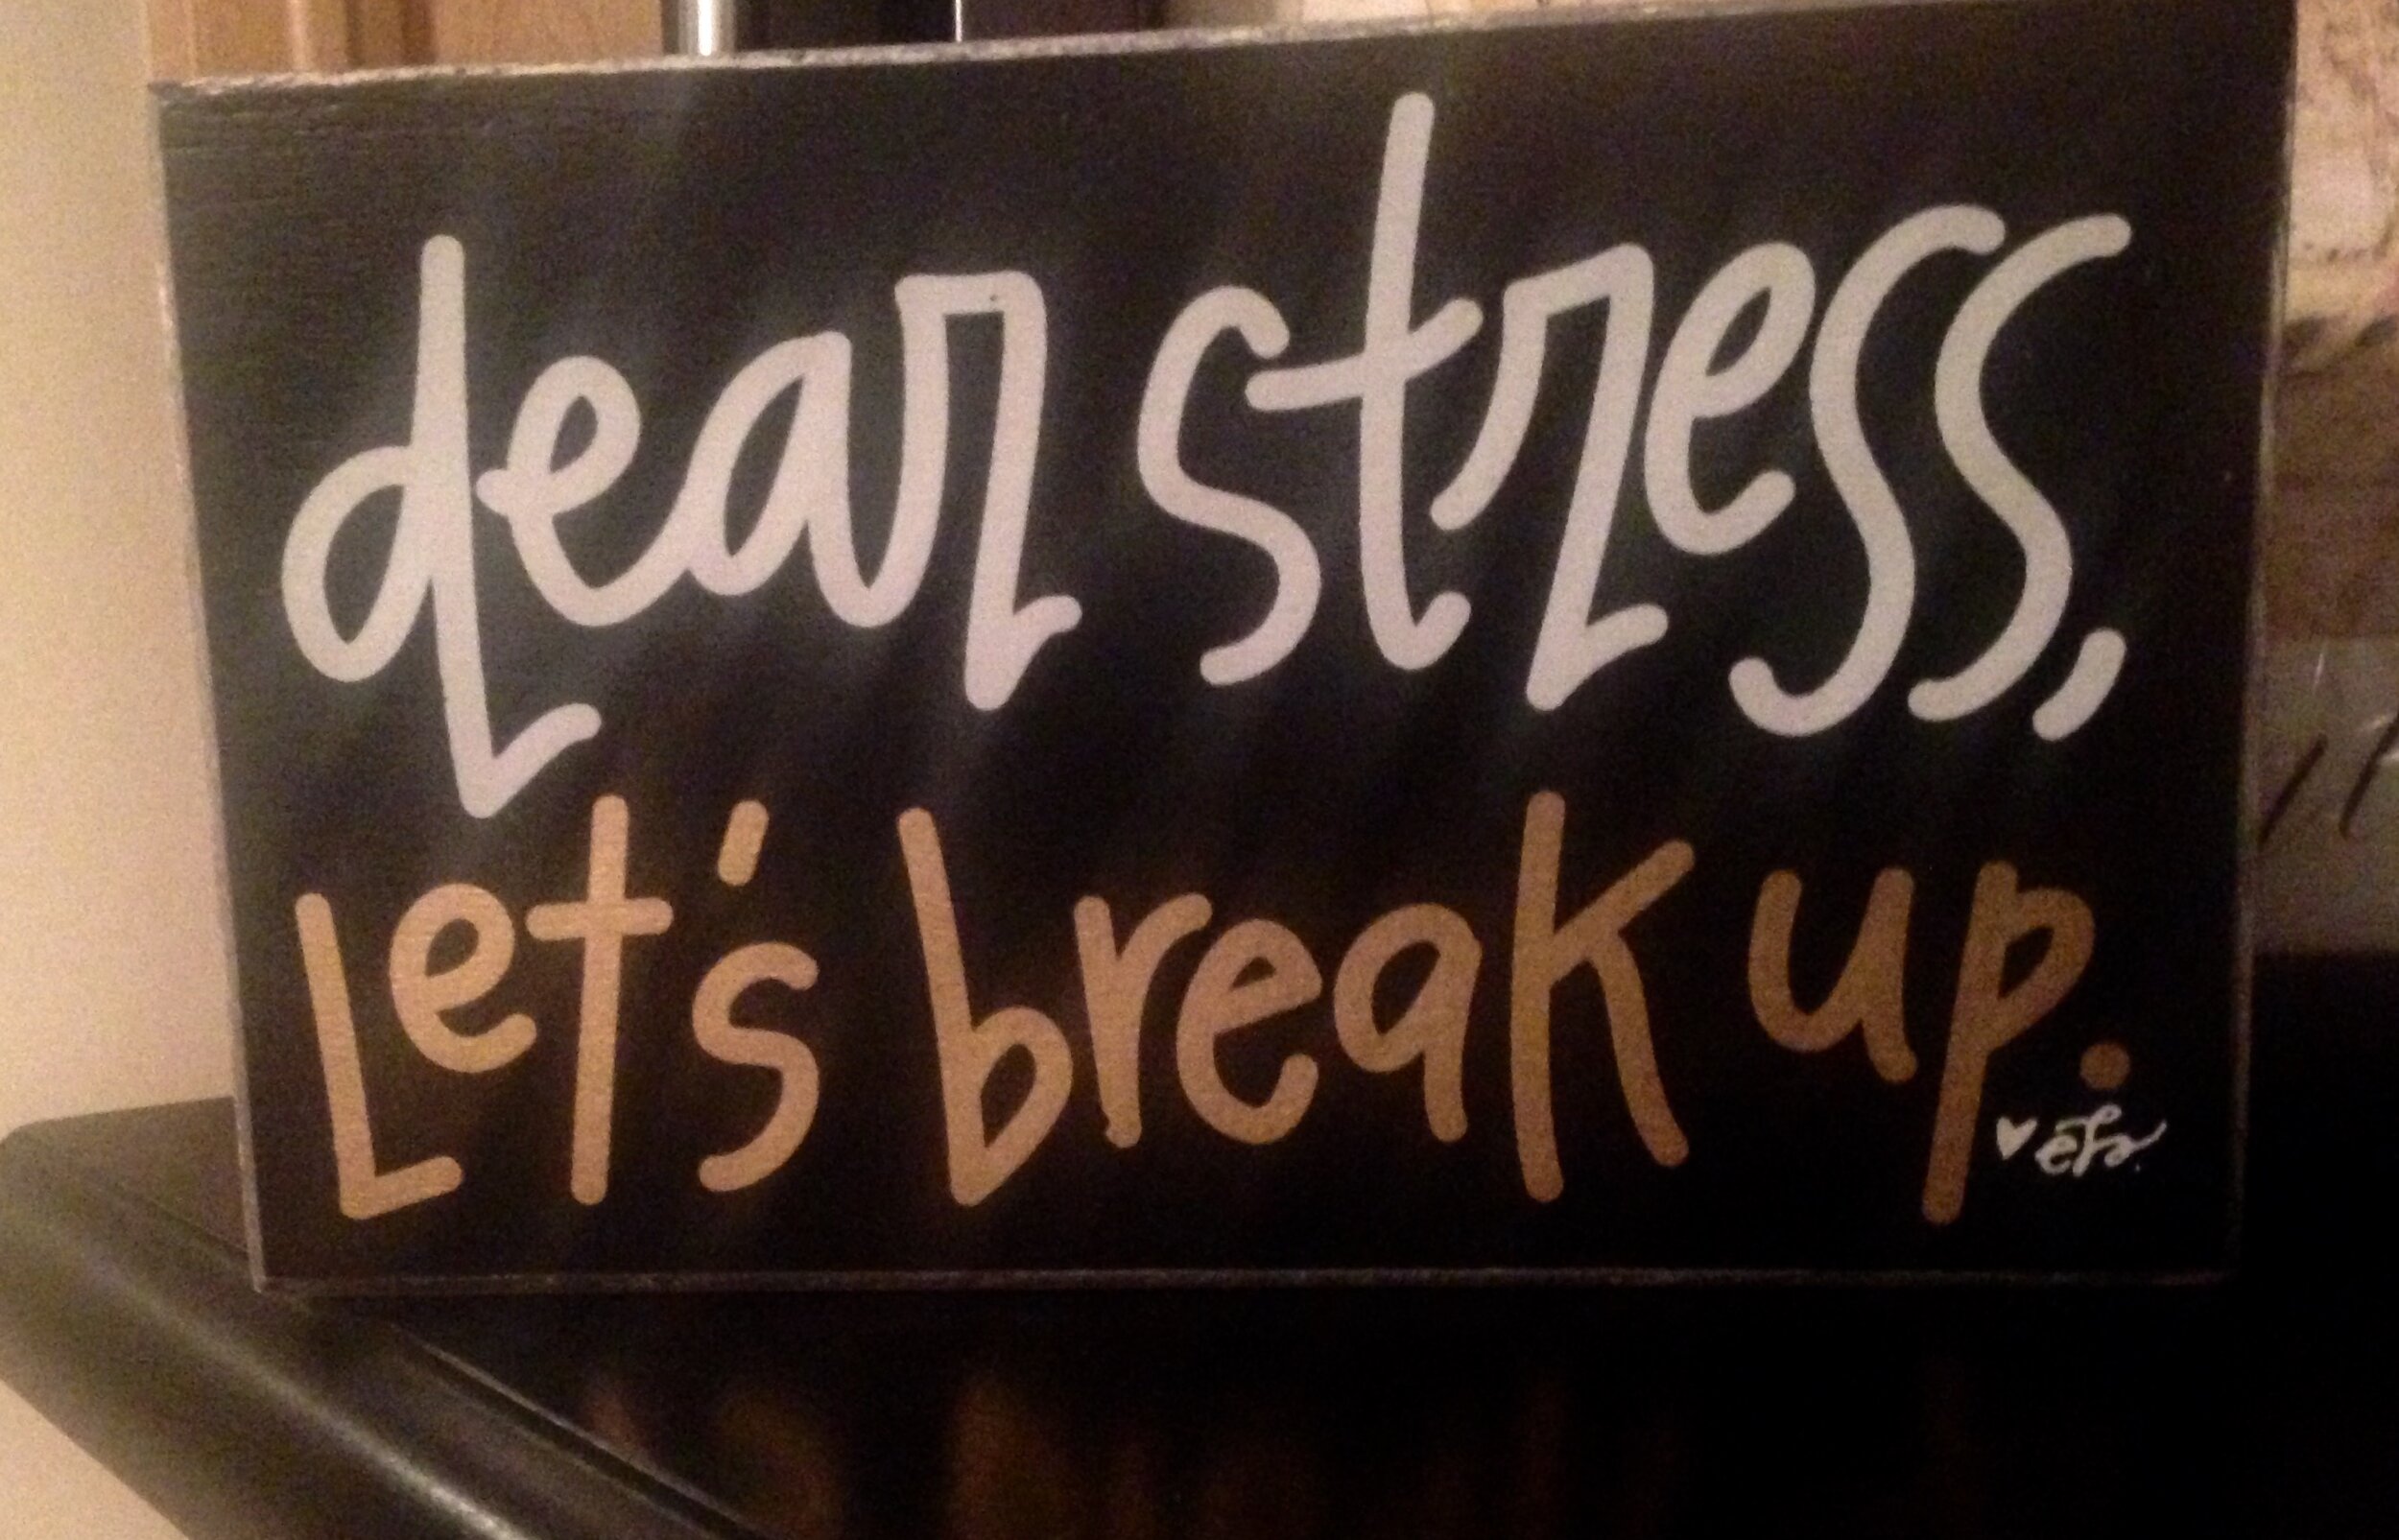 dear stress,
Let's break up.